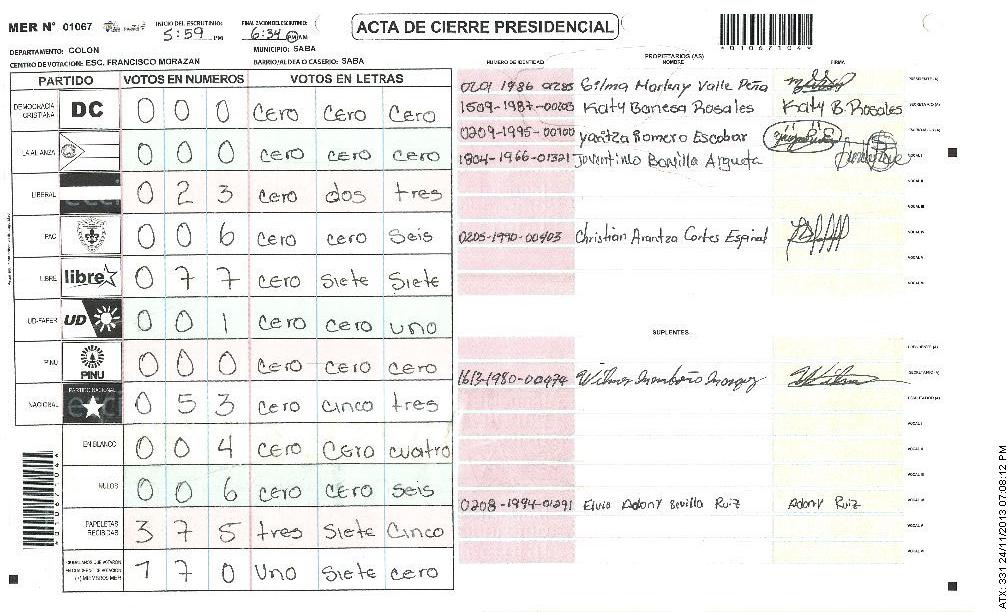 MER N° 01067
INICIO DEL ESCRUTINIO: 5:59 PM
FINALIZACION DEL ESCRUTINIO: 6:34 PM AM
ACTA DE CIERRE PRESIDENCIAL
*01067104*
DEPARTAMENTO: COLON
MUNICIPIO: SABA
CENTRO DE VOTACION: ESC. FRANCISCO MORAZAN
BARRIO/ALDEA O CASERIO: SABA
PARTIDO VOTOS EN NUMEROS VOTOS EN LETRAS
DEMOCRACIA CRISTIANA DC 0 0 0 cero cero cero
LA ALIANZA 0 0 0 cero cero cero
LIBERAL 0 2 3 cero dos tres
PAC 0 0 6 cero cero seis
LIBRE libre 0 7 7 cero siete siete
UD-FAPER UD 0 0 1 cero cero uno
PINU PINU 0 0 0 cero cero cero
NACIONAL PARTIDO NACIONAL 0 5 3 cero cinco tres
EN BLANCO 0 0 4 cero cero cuatro
NULOS 0 0 6 cero cero seis
PAPELETAS RECIBIDAS 3 7 5 tres siete cinco
(+) MIEMBROS MER 1 7 0 uno siete cero
PROPIETARIOS (AS)
NUMERO DE IDENTIDAD NOMBRE FIRMA
0201 1986 01285 Gilma Marleny Valle Peña PRESIDENTE (A)
1509-1987-00803 Katy Banesa Rosales Katy B. Rosales SECRETARIO (A)
0209-1995-00700 Yaritza Romero Escobar
1804-1966-01321 Joventino Bonilla Argueta VOCAL I
VOCAL II
VOCAL III
0205-1990-00403 Christian Arantza Cortes Espinal VOCAL IV
VOCAL V
VOCAL VI
SUPLENTES
PRESIDENTE (A)
1613-1980-00474 SECRETARIO (A)
ESCRUTADOR (A)
VOCAL I
VOCAL II
VOCAL III
0208-1994-01291 Elvio Adony Bonilla Ruiz Adony Ruiz VOCAL IV
VOCAL V
VOCAL VI
ATX: 331 24/11/2013 07:08:12 PM